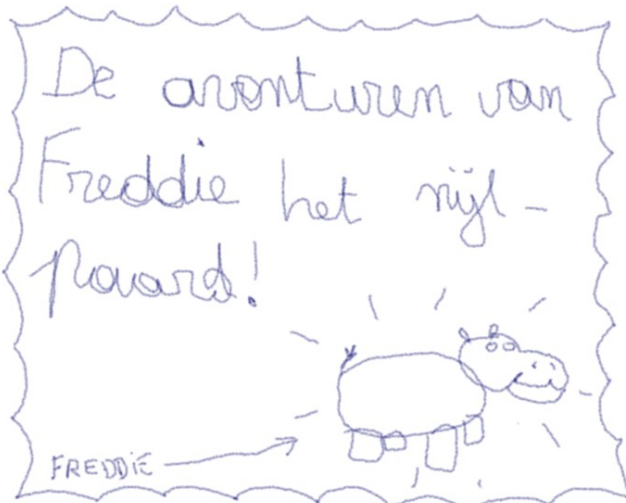 De avonturen van
Freddie het nijl-
paard!
FREDDIE